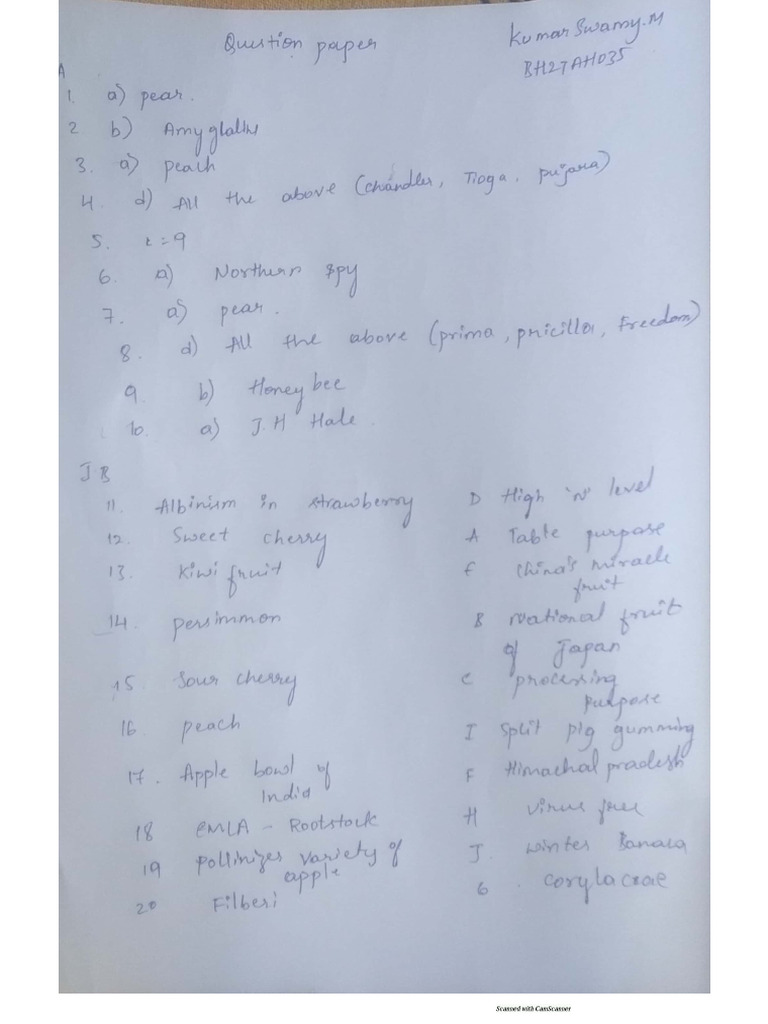 Question paper
Kumar Swamy.M
BH27AH035
A
1. a) pear.
2 b) Amyglalus
3. a) peach
4. d) All the above (chandler, Tioga, pujara)
5. x=9
6. a) Northern spy
7. a) pear.
8. d) All the above (prima, pricilla, Freedom)
9. b) Honey bee
10. a) J.H Hale.
I B
11. Albinism in strawberry D High 'N' level
12. Sweet cherry A Table purpose
13. Kiwi fruit E China's miracle
fruit
14. persimmon B National fruit
of Japan
15 Sour cherry C processing
purpose
16. peach I Split pig gumming
17. Apple bowl of F Himachal pradesh
India
18 EMLA - Rootstock H virus free
19 pollinizer variety of J. winter Banana
apple
20 Filberi G. corylacrae
Scanned with CamScanner